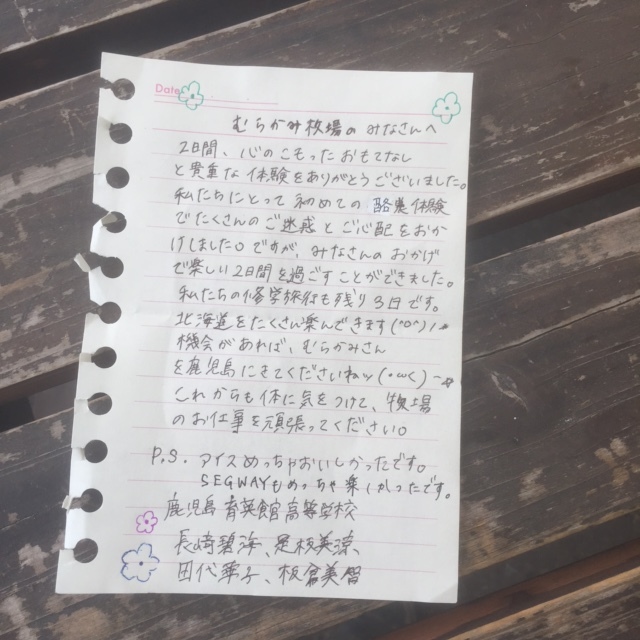 Date
むらかみ牧場の みなさんへ
2日間、心のこもったおもてなし
と貴重な体験をありがとうございました。
私たちにとって初めての酪農体験
でたくさんのご迷惑とご心配をおか
けしました。ですが、みなさんのおかげ
で楽しい2日間を過ごすことができました。
私たちの修学旅行も残り3日です。
北海道をたくさん楽んできます(^o^)/
機会があれば、むらかみさん
を鹿児島にきてくださいねッ(・ω<)
これからも体に気をつけて、牧場
のお仕事を頑張ってください。
P.S. アイスめっちゃおいしかったです。
SEGWAYもめっちゃ楽しかったです。
鹿児島育英館高等学校
長崎碧海、是枝美涼、
田代華子、板倉美